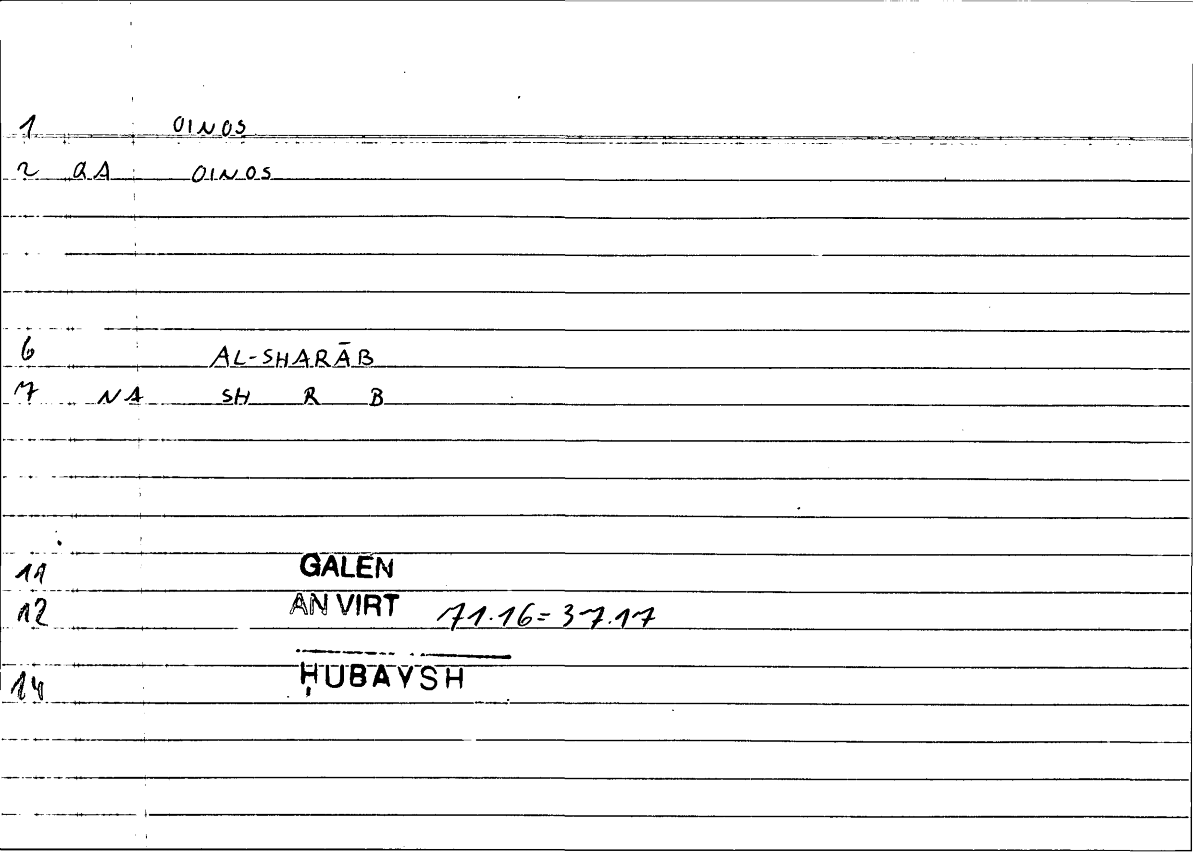 1 OINOS
2 QA OINOS
6 AL-SHARĀB
7 NA SH R B
11 GALEN
12 AN VIRT 71.16=37.17
14 ḤUBAYSH